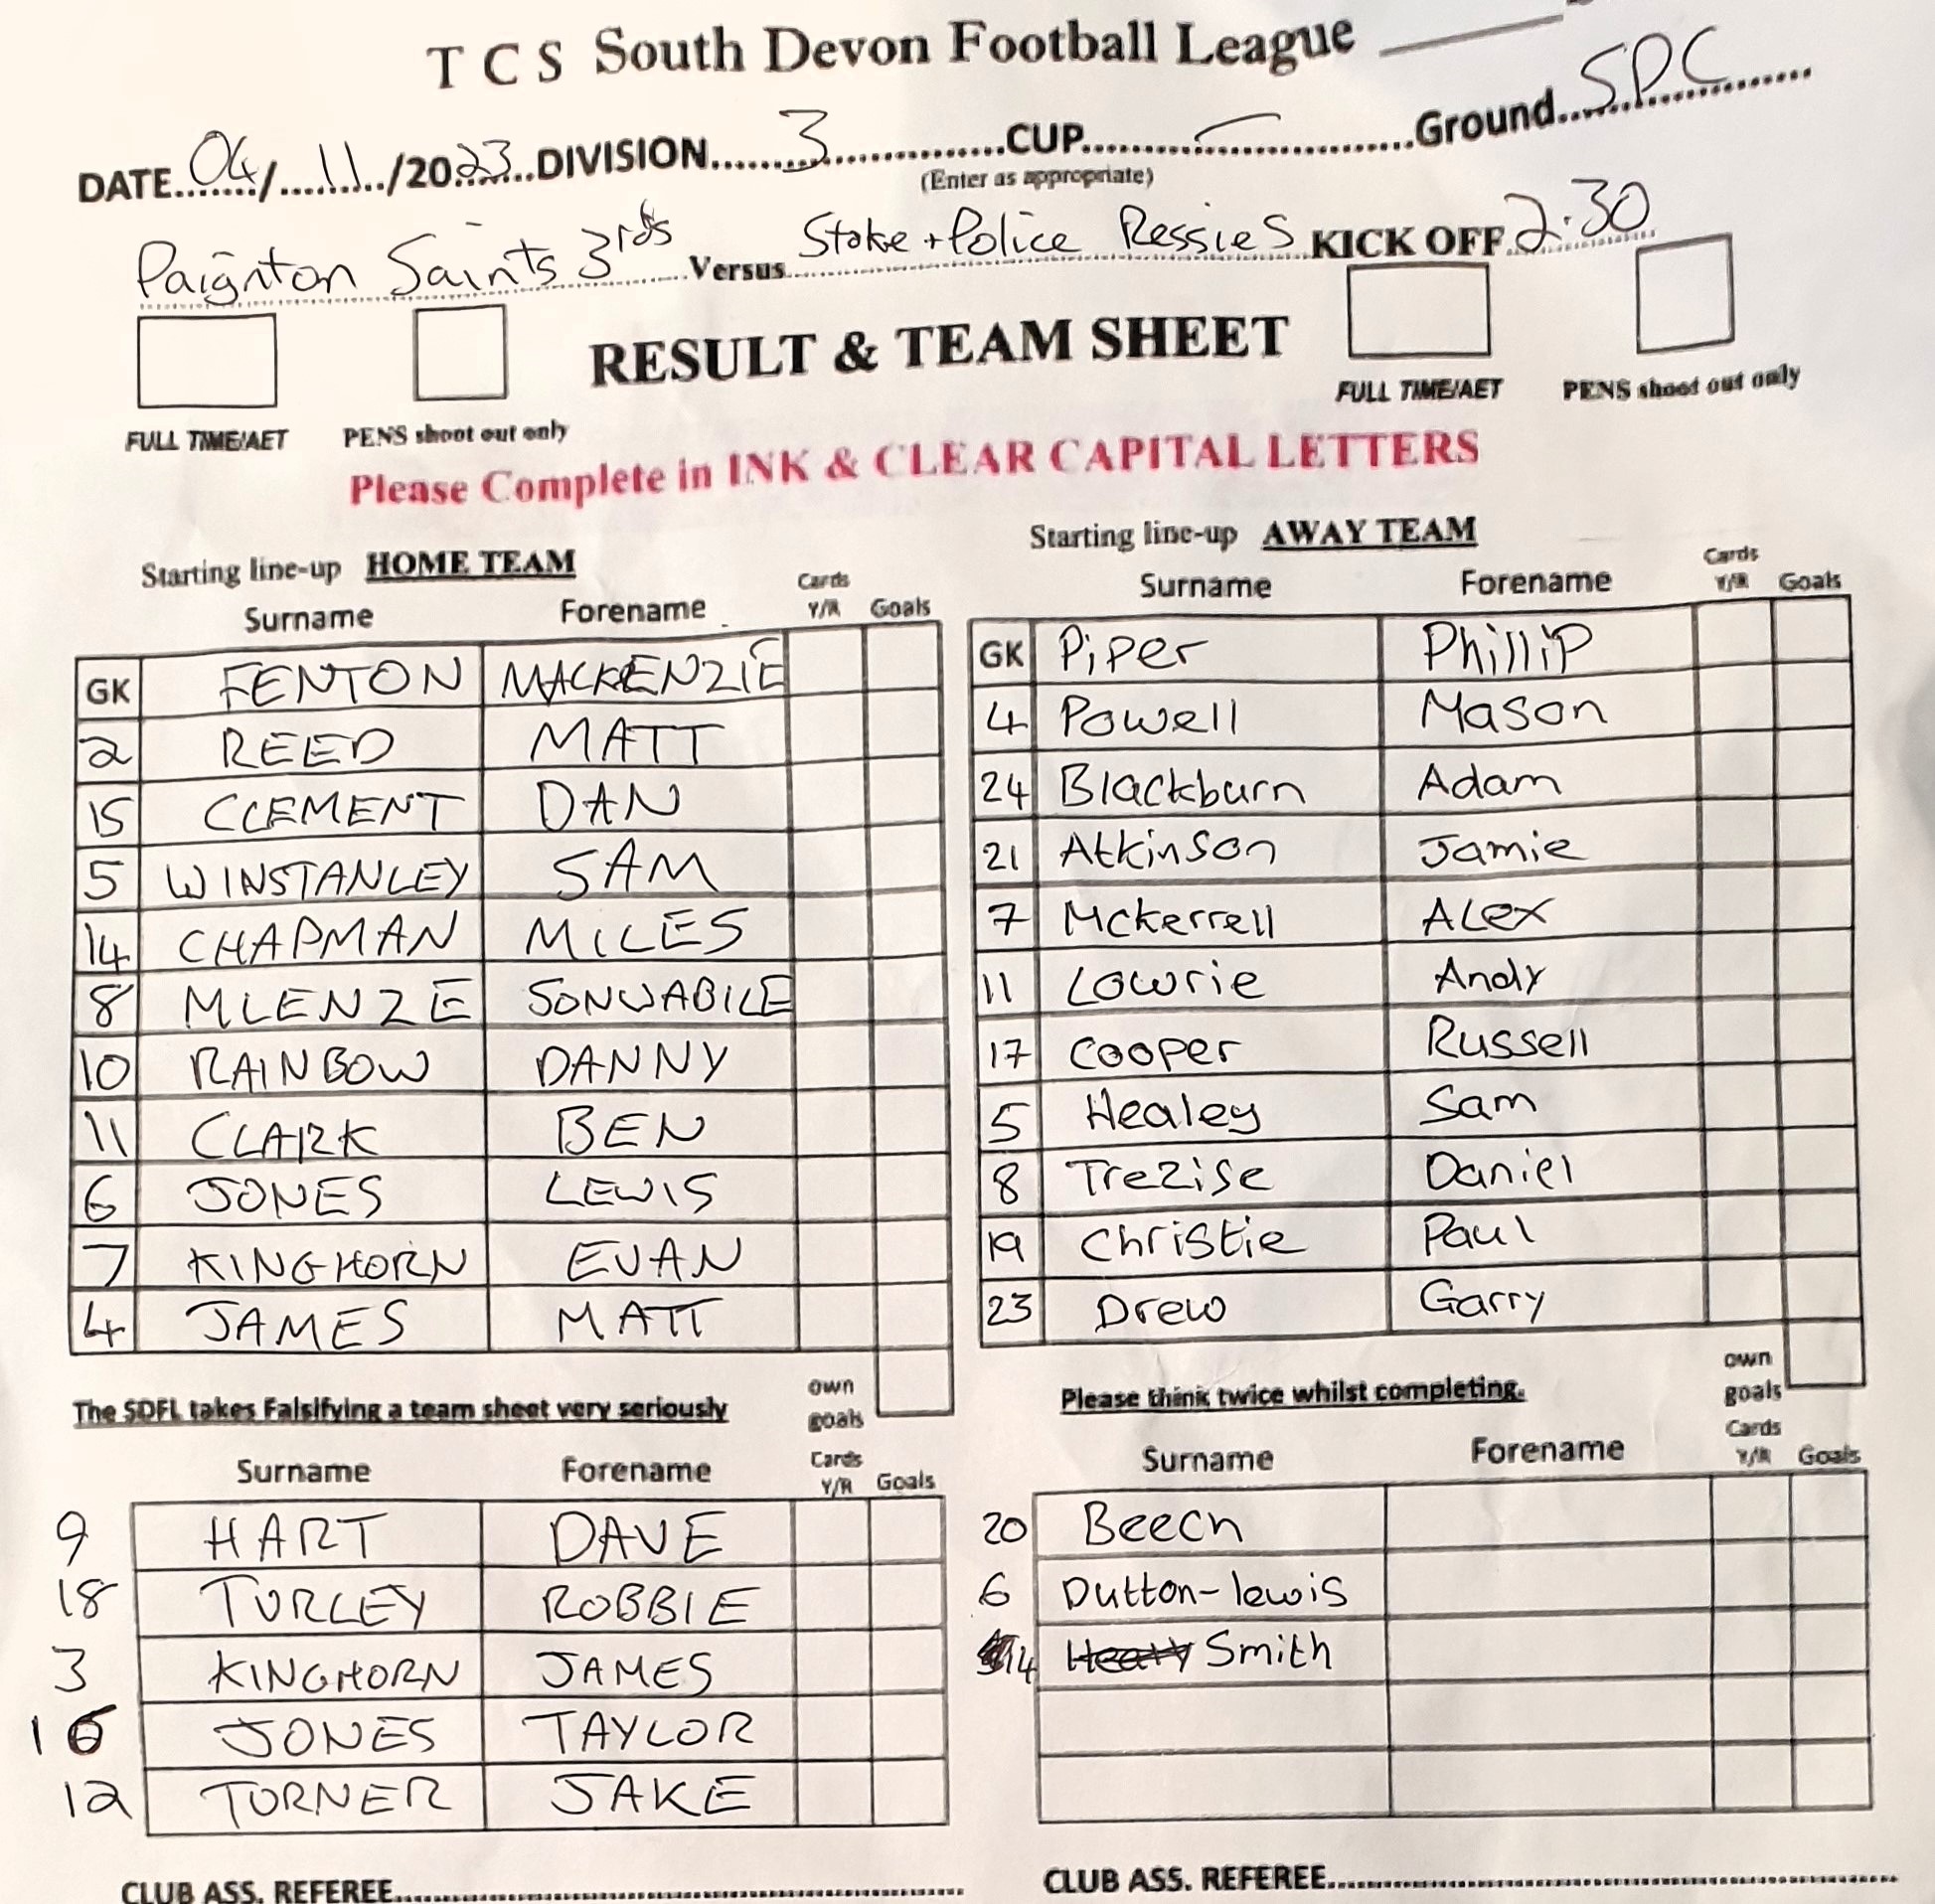 T C S South Devon Football League
DATE 04/11/2023 DIVISION 3 CUP — Ground SPC
(Enter as appropriate)
Paignton Saints 3rds Versus Stoke + Police Ressies KICK OFF 2.30
RESULT & TEAM SHEET
FULL TIME/AET PENS shoot out only FULL TIME/AET PENS shoot out only
Please Complete in INK & CLEAR CAPITAL LETTERS
Starting line-up HOME TEAM
Surname Forename Cards Y/R Goals
GK FENTON MACKENZIE
2 REED MATT
15 CLEMENT DAN
5 WINSTANLEY SAM
14 CHAPMAN MILES
8 MLENZE SONWABILE
10 RAINBOW DANNY
11 CLARK BEN
6 JONES LEWIS
7 KINGHORN EVAN
4 JAMES MATT
own goals
The SDFL takes Falsifying a team sheet very seriously
Surname Forename Cards Y/R Goals
9 HART DAVE
18 TURLEY ROBBIE
3 KINGHORN JAMES
16 JONES TAYLOR
12 TURNER JAKE
CLUB ASS. REFEREE
Starting line-up AWAY TEAM
Surname Forename Cards Y/R Goals
GK Piper Phillip
4 Powell Mason
24 Blackburn Adam
21 Atkinson Jamie
7 Mckerrell ALex
11 Lowrie Andy
17 Cooper Russell
5 Healey Sam
8 Trezise Daniel
19 Christie Paul
23 Drew Garry
own goals
Please think twice whilst completing.
Surname Forename Cards Y/R Goals
20 Beech
6 Dutton-lewis
14 Smith
CLUB ASS. REFEREE